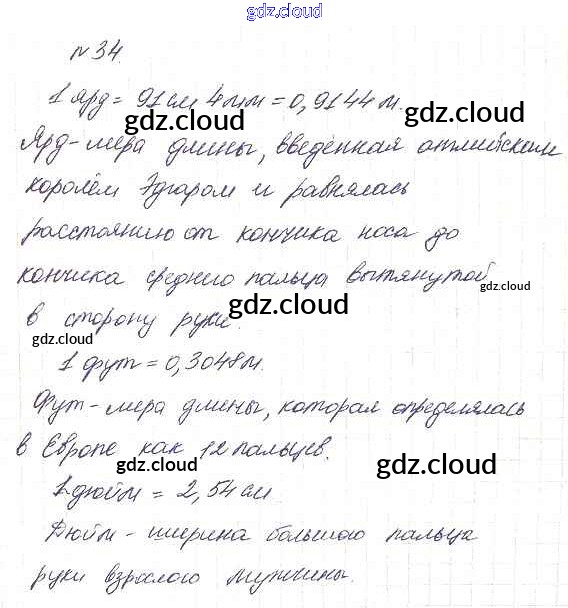 gdz.cloud
№34.
1 ярд = 91 см 4 мм = 0,9144 м.
gdz.cloud gdz.cloud
Ярд - мера длины, введённая английским
королём Эдгаром и равнялась
расстоянию от кончика носа до
кончика среднего пальца вытянутой
gdz.cloud
в сторону руки.
gdz.cloud
gdz.cloud
1 фут = 0,3048 м.
Фут - мера длины, которая определялась
в Европе как 12 пальцев.
gdz.cloud gdz.cloud
1 дюйм = 2,54 см
Дюйм - ширина большого пальца
руки взрослого мужчины.
gdz.cloud